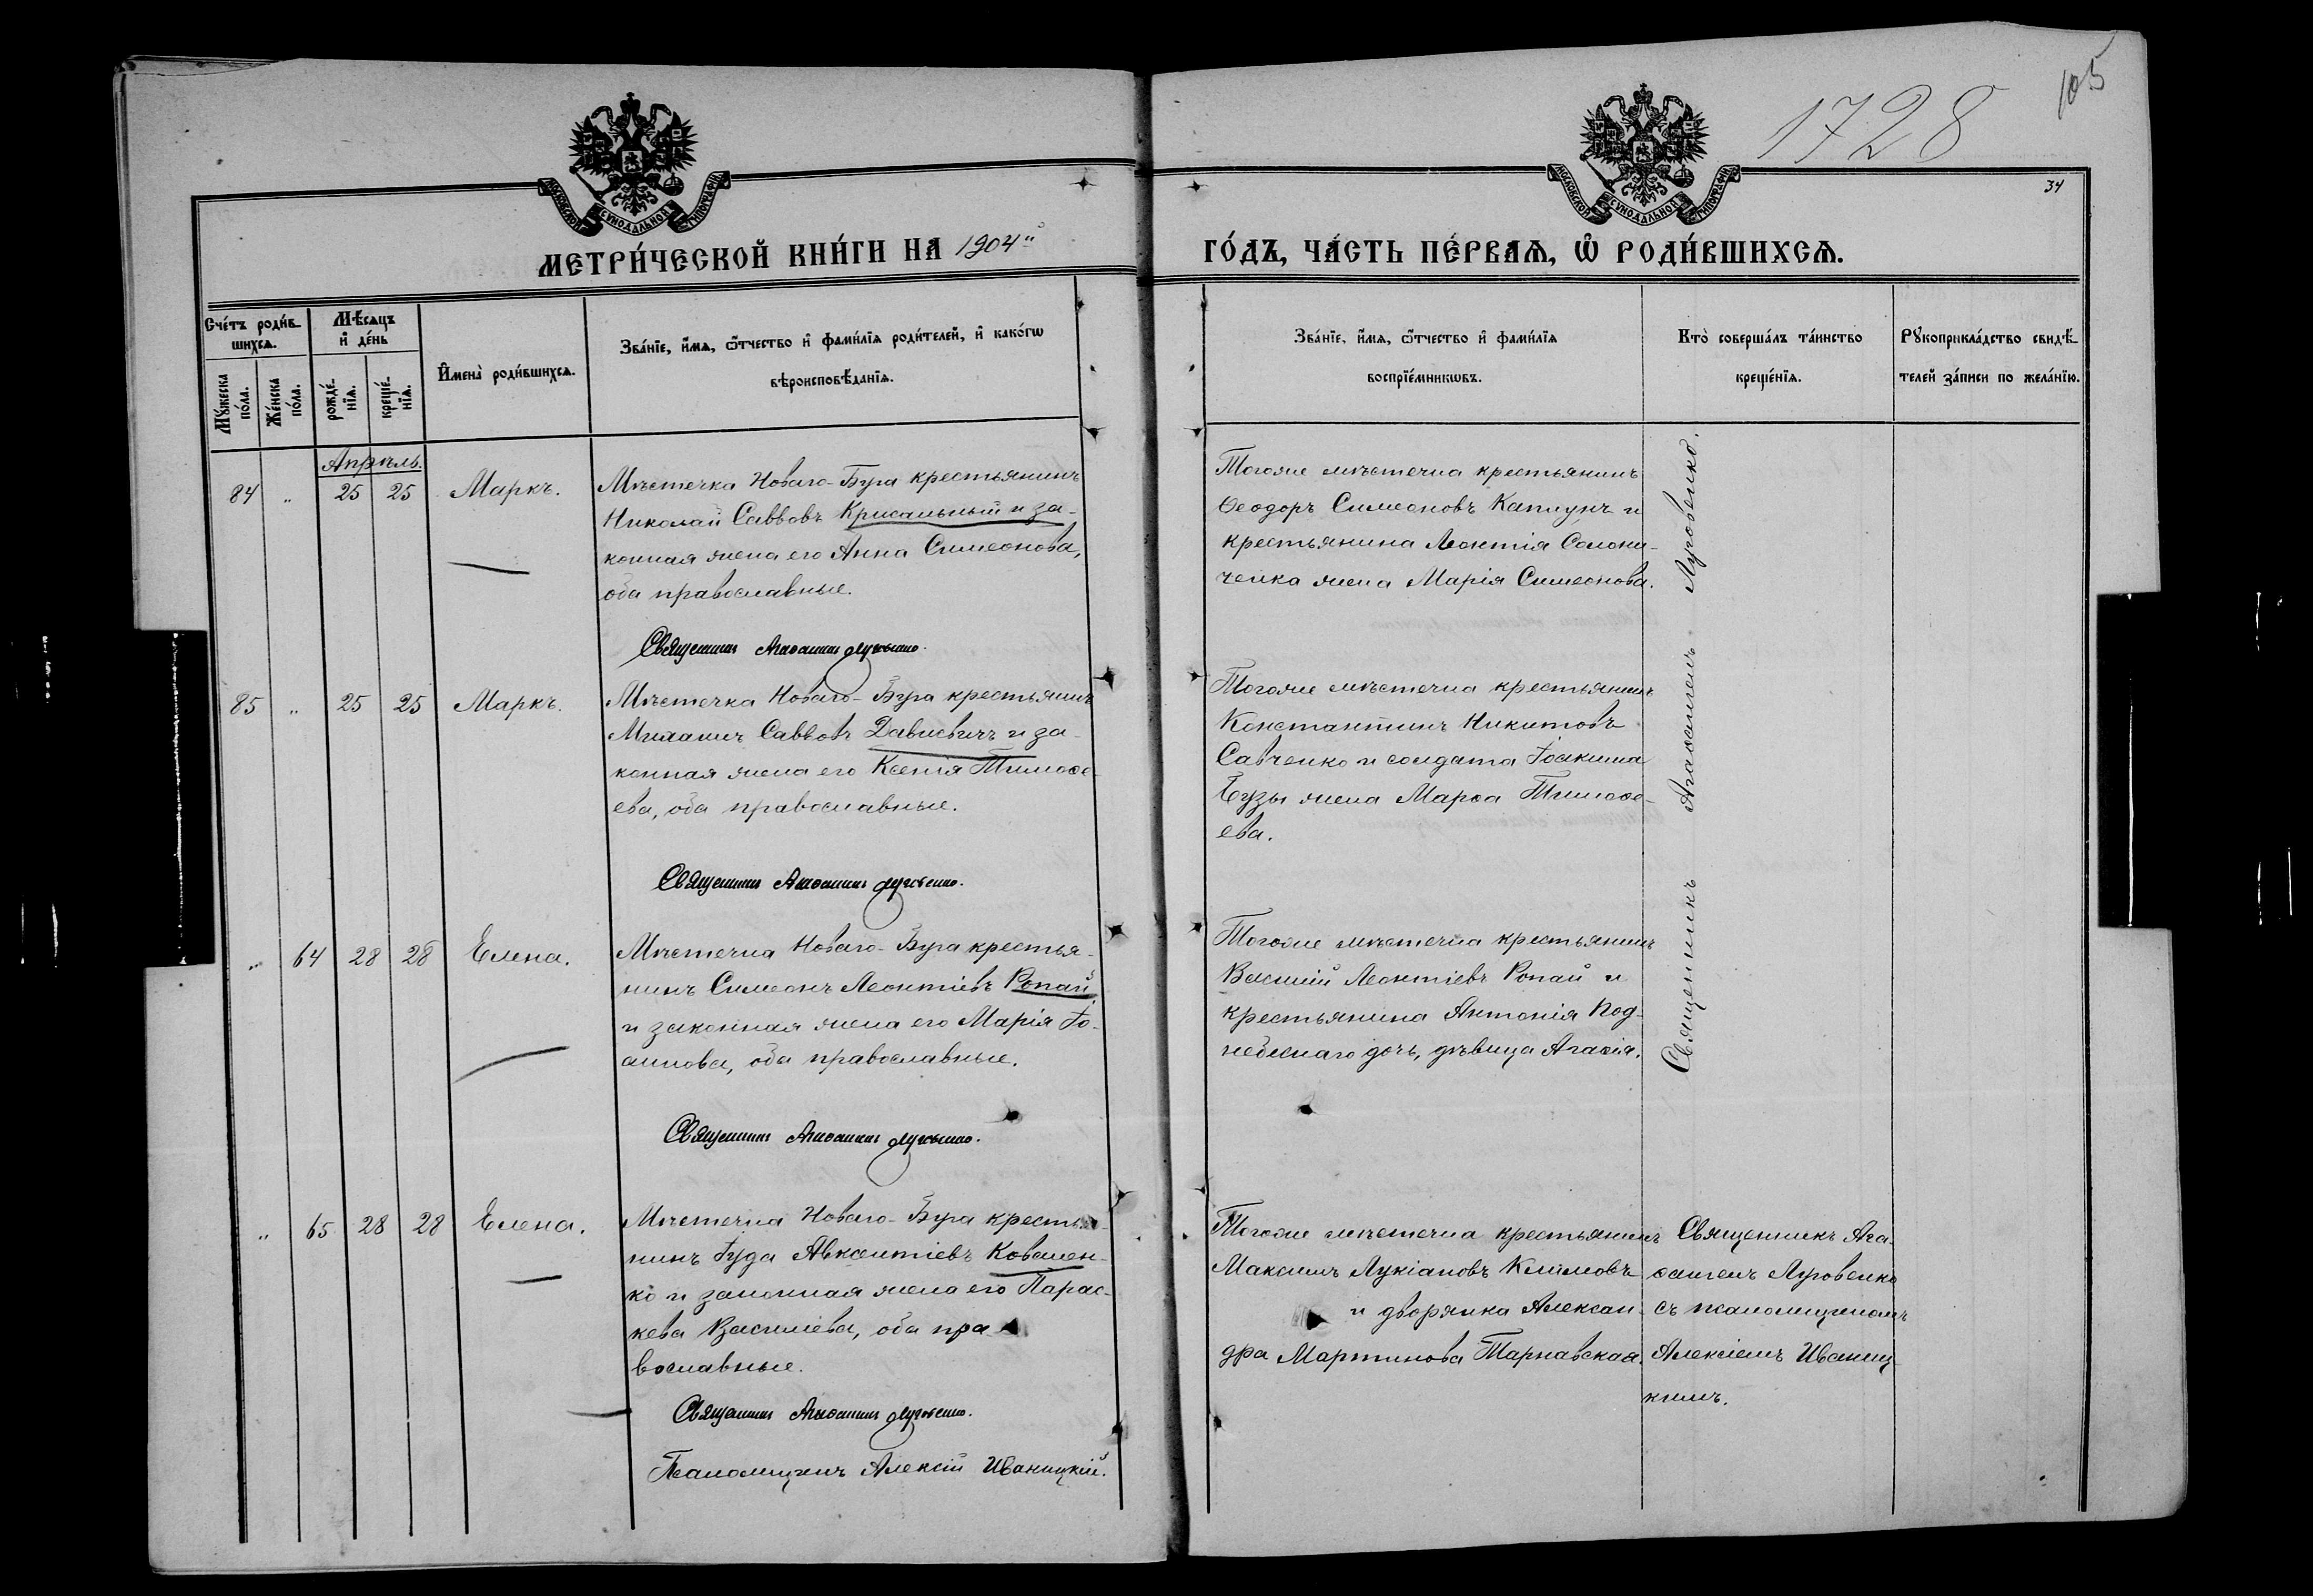 1728
105
34
МОСКОВСКОЙ СѴНОДАЛЬНОЙ ТИПОГРАФІИ
МОСКОВСКОЙ СѴНОДАЛЬНОЙ ТИПОГРАФІИ
МЕТРИ́ЧЕСКОЙ КНИ́ГИ НА 1904й
ГО́ДЪ, ЧА́СТЬ ПЕ́РВАѦ, Ѡ҆ РОДИ́ВШИХСѦ.
Сче́тъ роди́в-
шихсѧ.
Мѣ́сѧцъ
и҆ де́нь
Мꙋ́жеска
по́ла.
Же́нска
по́ла.
рожде́-
нїѧ.
креще́-
нїѧ.
И҆мена̀ роди́вшихсѧ.
Зва́нїе, и҆́мѧ, ѻ҆́тчество и҆ фами́лїѧ роди́телей, и҆ како́гѡ
вѣроисповѣ́данїѧ.
Зва́нїе, и҆́мѧ, ѻ҆́тчество и҆ фами́лїѧ
воспрїе́мникѡвъ.
Кто̀ соверша́лъ та́инство
креще́нїѧ.
Рꙋкоприкла́дство свидѣ́-
телей за́писи по жела́нїю.
Апрѣль.
84 „ 25 25 Маркъ.
Мѣстечка Новаго-Буга крестьянинъ
Николай Саввовъ и за-
конная жена его Анна Симеонова,
оба православные.
Священникъ Агаѳангелъ Луговенко.
Тогоже мѣстечка крестьянинъ
Ѳеодоръ Симеоновъ Каплунъ и
крестьянина Леонтія Солони-
ченка жена Марія Симеонова.
85 „ 25 25 Маркъ.
Мѣстечка Новаго-Буга крестьянинъ
Саввовъ и за-
конная жена его Ксенія Тимоѳе-
ева, оба православные.
Священникъ Агаѳангелъ Луговенко.
Тогоже мѣстечка крестьянинъ
Константинъ Никитовъ
Савченко и солдата Іоакима
Бузы жена Марѳа Тимоѳе-
ева.
„ 64 28 28 Елена.
Мѣстечка Новаго-Буга крестья-
нинъ Симеонъ Леонтіевъ Ропай
и законная жена его Марія Іо-
аннова, оба православные.
Священникъ Агаѳангелъ Луговенко.
Тогоже мѣстечка крестьянинъ
Василій Леонтіевъ Ропай и
крестьянина Антонія Под-
небеснаго дочь, дѣвица Агаѳія.
Священникъ Агаѳангелъ Луговенко.
„ 65 28 28 Елена.
Мѣстечка Новаго-Буга крестья-
нинъ Іуда Авксентіевъ Ковален-
ко и законная жена его Парас-
кева Василіева, оба пра-
вославные.
Священникъ Агаѳангелъ Луговенко.
Псаломщикъ Алексій Иваницкій.
Тогоже мѣстечка крестьянинъ
Максимъ Лукіановъ Климовъ
и дворянка Алексан-
дра Мартинова Тарнавская.
Священникъ Ага-
ѳангелъ Луговенко
съ псаломщикомъ
Алексіемъ Иваниц-
кимъ.